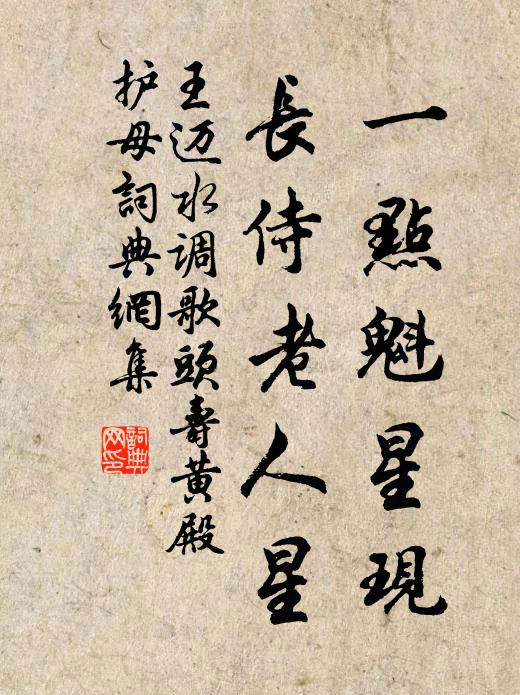 一點魁星現
長侍老人星
王迈水调歌頭壽黄殿
护母詞典網集
詞典
网印